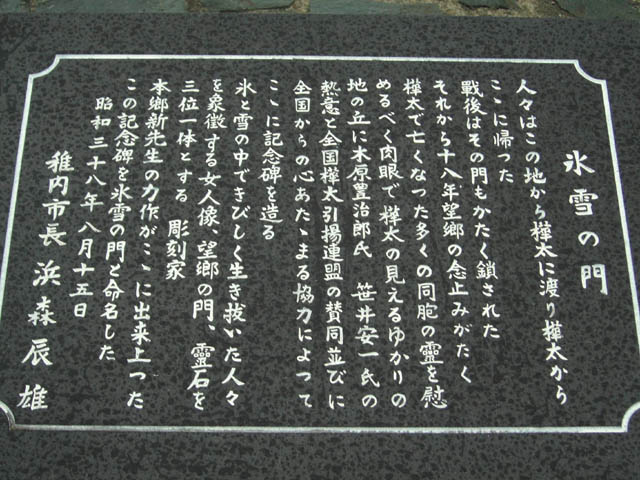 氷雪の門
人々はこの地から樺太に渡り樺太から
ここに帰った
戰後はその門もかたく鎖された
それから十八年望郷の念止みがたく
樺太で亡くなった多くの同胞の靈を慰
めるべく肉眼で樺太の見えるゆかりの
地の丘に木原豊治郎氏 笹井安一氏の
熱意と全国樺太引揚連盟の賛同並びに
全国からの心あたゝまる協力によつて
こゝに記念碑を造る
氷と雪の中できびしく生き抜いた人々
を象徴する女人像、望郷の門、靈石を
三位一体とする 彫刻家
本郷新先生の力作がこゝに出来上つた
この記念碑を氷雪の門と命名した
昭和三十八年八月十五日
稚内市長 浜森辰雄